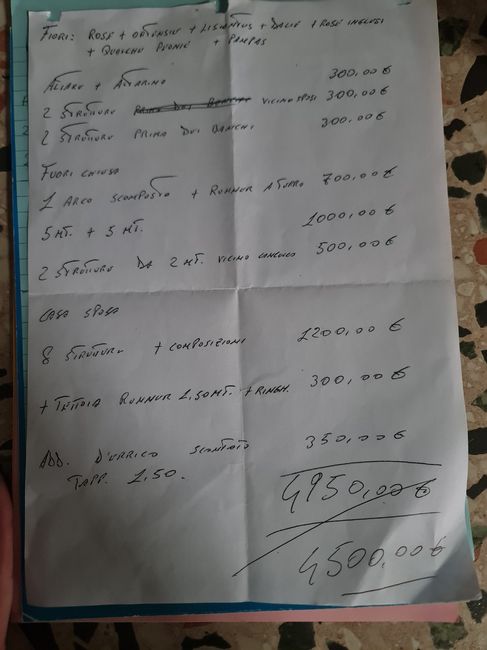 FIORI: ROSE + ORTENSIE + LISIANTUS + DALIE + ROSE INGLESI
+ QUALCHE PEONIE + PAMPAS
ALTARE + ALTARINO 300,00 €
2 STRUTTURE PRIMA DEI BANCHI VICINO SPOSI 300,00 €
2 STRUTTURE PRIMA DEI BANCHI 300,00 €
FUORI CHIESA
1 ARCO SCOMPOSTO + RUNNER A TERRA 700,00 €
5 MT. + 5 MT. 1000,00 €
2 STRUTTURE DA 2 MT. VICINO CANCELLO 500,00 €
CASA SPOSA
8 STRUTTURE + COMPOSIZIONI 1200,00 €
+ TETTOIA RUNNER 1,50 MT. + RINGH. 300,00 €
ADD. D'ERRICO SCONTATO 350,00 €
TAPP. 1,50.
4950,00 €
4500,00 €